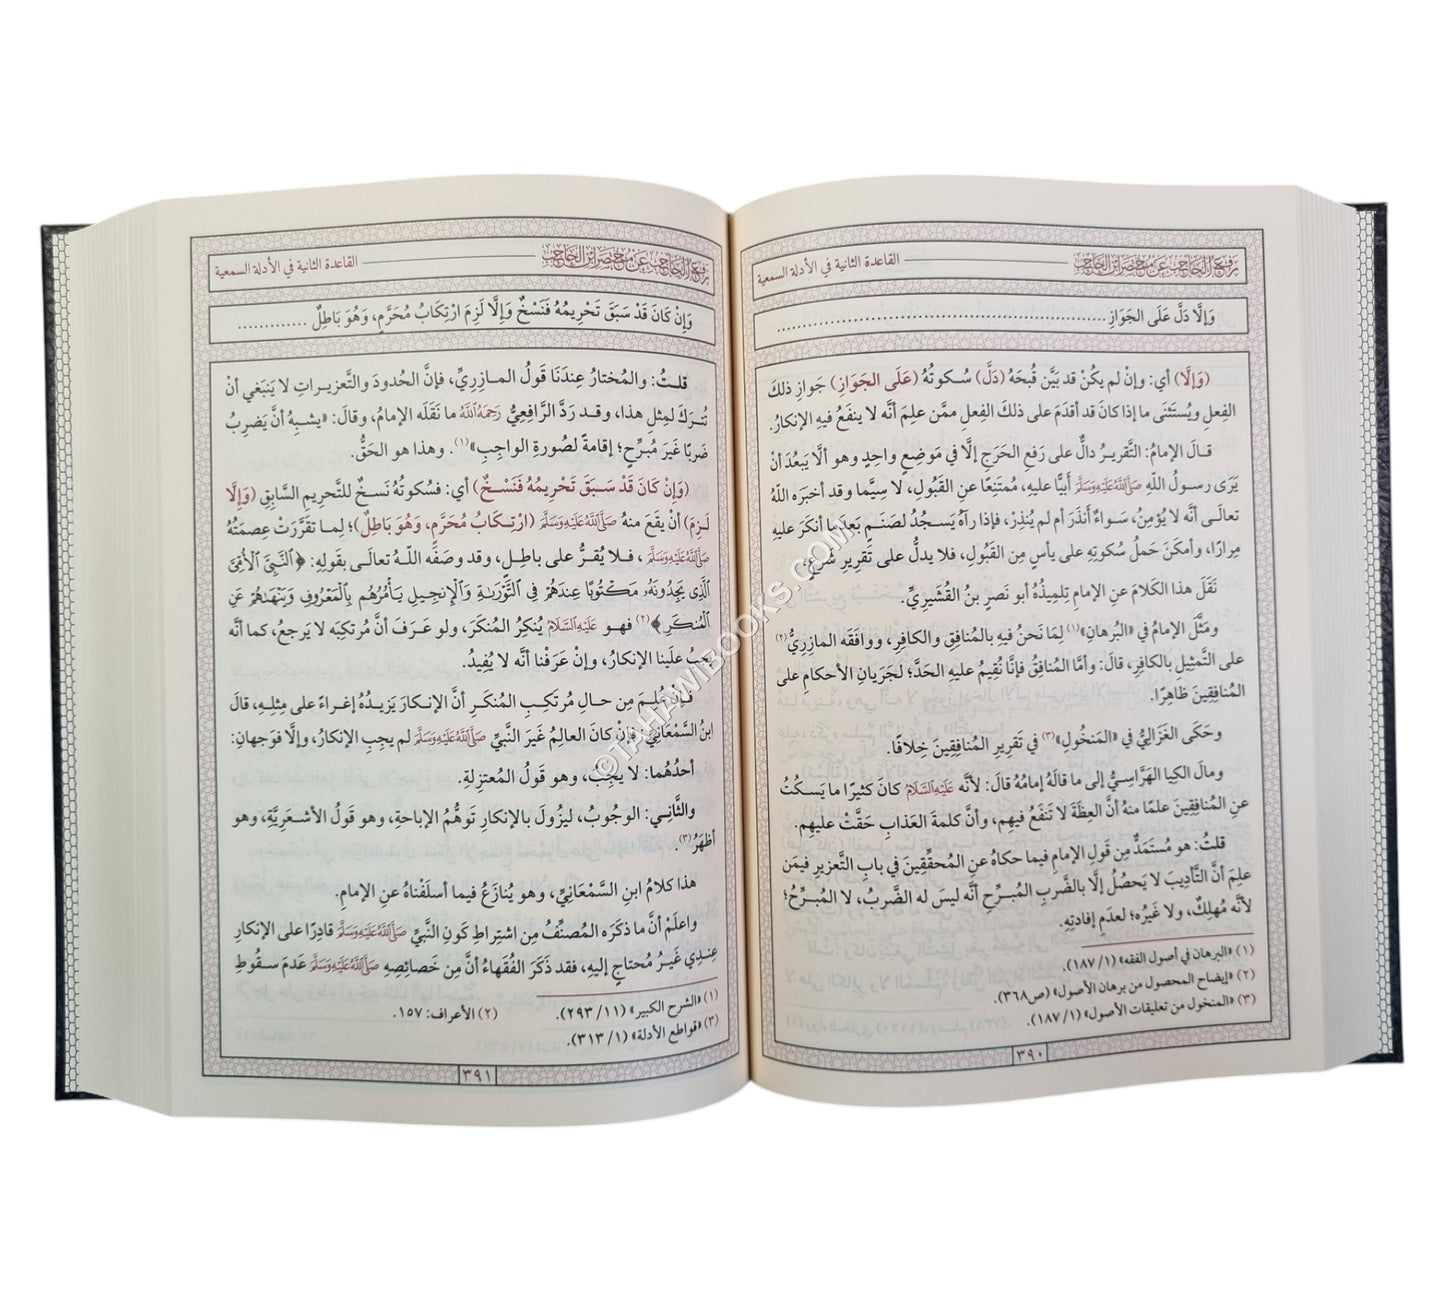 رفع الحاجب عن مختصر ابن الحاجب القاعدة الثانية في الأدلة السمعية
وَإِلَّا دَلَّ عَلَى الجَوَازِ ............................................................
(وَإِلَّا) أي: وإنْ لم يكُنْ قد بيَّن قُبحَهُ (دَلَّ) سُكوتُهُ (عَلَى الجَوَازِ) جَوازِ ذلكَ
الفِعلِ ويُستَثنَى ما إذا كانَ قد أقدَمَ على ذلكَ الفِعلِ ممَّن علِمَ أنَّه لا ينفَعُ فيهِ الإنكارُ.
قـالَ الإمامُ: التَّقريـرُ دالٌّ على رَفعِ الحَرَجِ إلَّا في مَوضِعٍ واحِدٍ وهو ألَّا يَبعُدَ أنْ
يَرَى رسـولُ اللَّهِ صَلَّى اللَّهُ عَلَيْهِ وَسَلَّمَ أَبِيًّا عليهِ، مُمتَنِعًا عنِ القَبُولِ، لا سِيَّما وقد أخبَرَه اللّهُ
تعالَـى أنَّه لا يُؤمِنُ، سَـواءٌ أنذَرَ أم لم يُنذِرْ، فإذا رآهُ يَسـجُدُ لصَنَـمٍ بَعدَما أنكَرَ عليهِ
مِرارًا، وأمكَنَ حَملُ سُكوتِهِ على يأسٍ مِن القَبُولِ، فلا يدلُّ على تَقريرِ شَرعٍ.
نَقَلَ هذا الكَلامَ عنِ الإمامِ تِلميذُهُ أبو نَصرٍ بنُ القُشَيريِّ.
ومَثَّلَ الإمامُ في «البُرهانِ»(١) لِمَا نَحنُ فيهِ بالمُنافِقِ والكافِرِ، ووافَقَه المازِريُّ(٢)
على التَّمثيلِ بالكافِرِ، قالَ: وأمَّا المُنافِقُ فإنَّا نُقِيمُ عليهِ الحَدَّ؛ لجَرَيانِ الأحكامِ على
المُنافِقِينَ ظاهِرًا.
وحَكَى الغَزَاليُّ في «المَنخُولِ»(٣) في تَقرِيرِ المُنافِقِينَ خِلافًا.
ومالَ الكِيا الهَرَّاسِـيُّ إلى ما قالَهُ إمامُهُ قالَ: لأنَّه عَلَيْهِ السَّلَامُ كانَ كَثيرًا ما يَسـكُتُ
عنِ المُنافِقِينَ علمًا منهُ أنَّ العِظَةَ لا تَنفَعُ فيهِم، وأنَّ كلمةَ العَذابِ حَقَّتْ عليهِم.
قلتُ: هو مُستَمَدٌّ مِن قَولِ الإمامِ فيما حكاهُ عنِ المُحقِّقِينَ في بابِ التَّعزيرِ فيمَن
علِمَ أنَّ التَّأديبَ لا يَحصُلُ إلَّا بالضَّربِ المُبـرِّحِ أنَّه ليسَ له الضَّربُ، لا المُبـرِّحُ؛
لأنَّه مُهلِكٌ، ولا غَيرُه؛ لعدَمِ إفادتِهِ.
(١) «البرهان في أصول الفقه» (١/ ١٨٧).
(٢) «إيضاح المحصول من برهان الأصول» (ص٣٦٨).
(٣) «المنخول من تعليقات الأصول» (١/ ١٨٧).
٣٩٠
رفع الحاجب عن مختصر ابن الحاجب القاعدة الثانية في الأدلة السمعية
وَإِنْ كَانَ قَدْ سَبَقَ تَحْرِيمُهُ فَنَسْخٌ وَإِلَّا لَزِمَ ارْتِكَابُ مُحَرَّمٍ، وَهُوَ بَاطِلٌ .............
قلـتُ: والمُختارُ عِندَنَا قَولُ المـازِريِّ، فإنَّ الحُدودَ والتَّعزيـراتِ لا يَنبَغي أنْ
تُتـرَكَ لمِثلِ هذا، وقـد رَدَّ الرَّافِعِيُّ رَحِمَهُ اللَّهُ ما نَقَلَه الإمامُ، وقالَ: «يشبِهُ أنْ يَضرِبَ
ضَربًا غَيرَ مُبرِّحٍ؛ إقامةً لصُورةِ الواجِبِ»(١). وهذا هو الحَقُّ.
(وَإِنْ كَانَ قَدْ سَـبَقَ تَحْرِيمُهُ فَنَسْـخٌ) أي: فسُكوتُهُ نَسـخٌ للتَّحريمِ السَّابِقِ (وَإِلَّا
لَـزِمَ) أنْ يقَعَ منهُ صَلَّى اللَّهُ عَلَيْهِ وَسَلَّمَ (ارْتِـكَابُ مُحَرَّمٍ، وَهُوَ بَاطِلٌ)؛ لِمـا تقرَّرَتْ عِصمَتُهُ
صَلَّى اللَّهُ عَلَيْهِ وَسَلَّمَ، فـلا يُقـرُّ على باطِـلٍ، وقد وصَفَه اللّـهُ تعالَـى بقَولِهِ: ﴿ٱلنَّبِيَّ ٱلۡأُمِّيَّ
ٱلَّذِي يَجِدُونَهُۥ مَكۡتُوبًا عِندَهُمۡ فِي ٱلتَّوۡرَىٰةِ وَٱلۡإِنجِيلِ يَأۡمُرُهُم بِٱلۡمَعۡرُوفِ وَيَنۡهَىٰهُمۡ عَنِ
ٱلۡمُنكَرِ﴾(٢) فهـو عَلَيْهِ السَّلَامُ يُنكِرُ المُنكَرَ، ولو عَـرَفَ أنَّ مُرتكِبَه لا يَرجعُ، كما أنَّه
يجِبُ علَينا الإنكارُ، وإنْ عَرَفْنا أنَّه لا يُفِيدُ.
فـإنْ عُلِـمَ مِن حـالِ مُرتَكِـبِ المُنكَـرِ أنَّ الإنكارَ يَزِيـدُهُ إغـراءً على مِثلِـهِ، قالَ
ابنُ السَّمْعَانِيِّ: فإنْ كانَ العالِمُ غَيرَ النَّبيِّ صَلَّى اللَّهُ عَلَيْهِ وَسَلَّمَ لم يجِبِ الإنكارُ، وإلَّا فوَجهانِ:
أحدُهُما: لا يَجِبُ، وهو قَولُ المُعتزِلةِ.
والثَّانِـي: الوجُوبُ، ليَزُولَ بالإنكارِ تَوهُّمُ الإباحةِ، وهو قَولُ الأشـعَرِيَّةِ، وهو
أظهَرُ(٣).
هذا كلامُ ابنِ السَّمْعَانِيِّ، وهو يُنازَعُ فيما أسلَفْناهُ عنِ الإمامِ.
واعلَمْ أنَّ ما ذكَرَه المُصنِّفُ مِن اشتِراطِ كَونِ النَّبيِّ صَلَّى اللَّهُ عَلَيْهِ وَسَلَّمَ قادِرًا على الإنكارِ
عِنـدِي غَيـرُ مُحتاجٍ إليهِ، فقد ذَكَرَ الفُقَهاءُ أنَّ مِن خَصائِصِهِ صَلَّى اللَّهُ عَلَيْهِ وَسَلَّمَ عَدمَ سـقُوطِ
(١) «الشرح الكبير» (١١/ ٢٩٣). (٢) الأعراف: ١٥٧.
(٣) «قواطع الأدلة» (١/ ٣١٣).
٣٩١
©TAHAWIBOOKS.COM